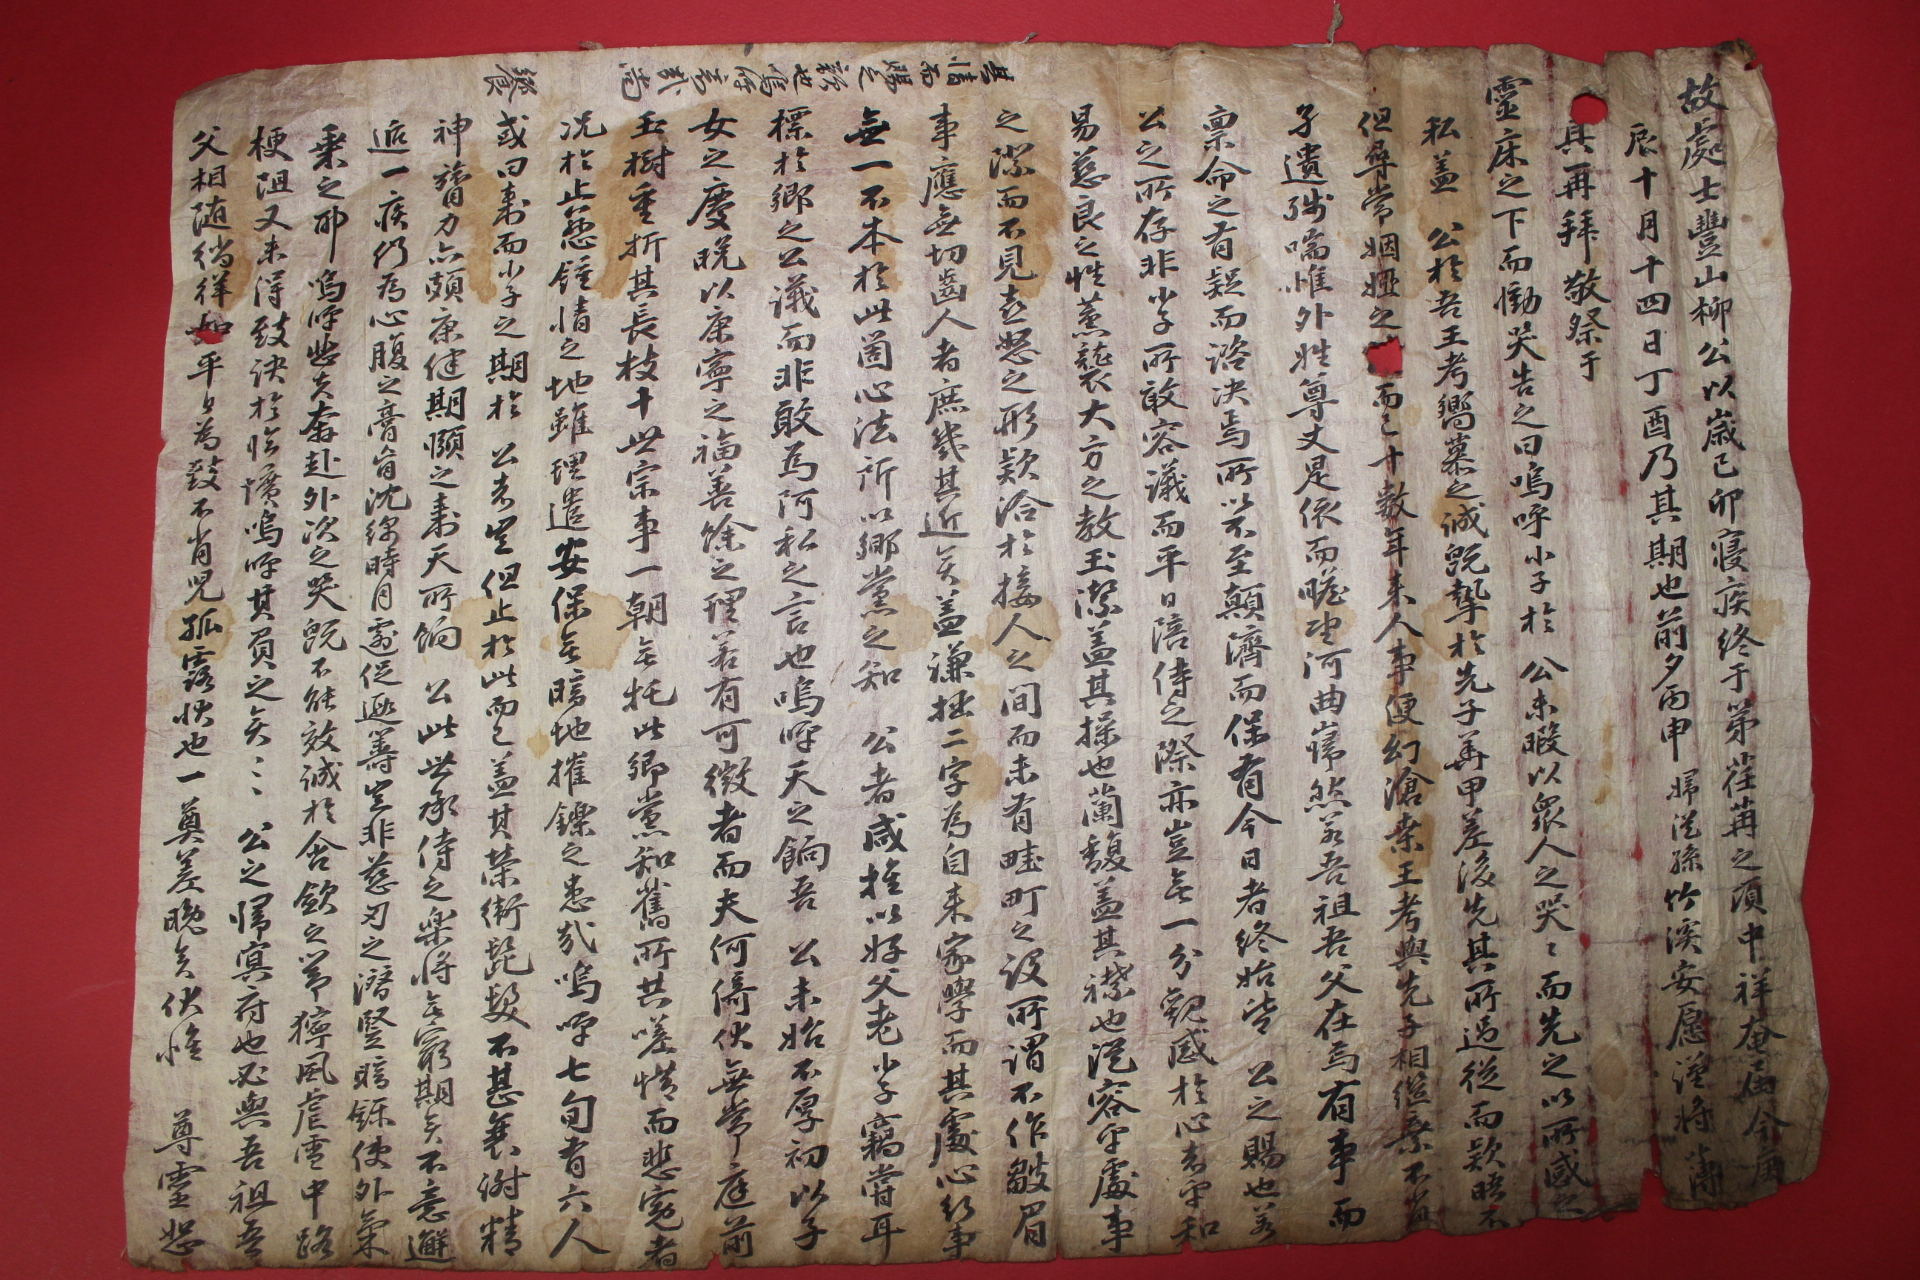 故處士豊山柳公以歲己卯寢疾終于第荏苒之頃中祥奄届今庚
辰十月十四日丁酉乃其期也前夕丙申婦從孫竹溪安愿謹將薄
具再拜敬祭于
靈床之下而慟哭告之曰嗚呼小子於 公未暇以衆人之哭〻而先之以所感之
私盖 公於吾王考嚮慕之誠旣摯於先子再甲差後先其所過從而欵晤不
但尋常姻婭之 而已十數年来人事便幻滄桒王考與先子相繼棄不肖
子遺殘喘惟外姓尊丈是依而瞻望河曲巋然若吾祖吾父在焉有事而
禀命之有疑而諮决焉所以不至顛隮而保有今日者終始皆 公之賜也若
公之所存非小子所敢容議而平日陪侍之際亦豈無一分觀感於心者乎和
易慈良之性薰襲大方之教玉潔盖其操也蘭馥盖其襟也從容乎處事
之際而不見忿怒之形欵洽於接人之间而未有畦町之設所謂不作皺眉
事應無切齒人者庶幾其近矣盖謙拙二字為自来家學而其處心行事
無一不本於此箇心法所以鄉黨之知 公者咸推以好父老小子竊嘗耳
標於鄉之公議而非敢爲阿私之言也嗚呼天之餉吾 公未始不厚初以子
女之慶晩以康寧之福善餘之理若有可徵者而夫何倚伏無常庭前
玉樹重折其長枝十世宗事一朝無托此鄉黨知舊所共嗟惜而悲寃者
况於止慈鍾情之地雖理遣安保無暗地摧鑠之患哉嗚呼七旬有六人
或曰壽而小子之期於 公者豈但止於此而已盖其榮衛髭髮不甚衰謝精
神膂力亦頗康健期頤之壽天所餉 公此世承侍之樂將無窮期矣不意邂
逅一疾仍為心腹之膏肓沈綿時月遽促遐筭豈非慈刃之潜竪暗鑠使外氣
乘之耶 嗚呼世矣奔赴外次之哭旣不能效誠於含歛之節獰風虐雪中路
梗阻又未得致訣於臨壙嗚呼其負之矣〻〻 公之歸冥府也必與吾祖吾
父相随徜徉如平日為致不肖兒孤露状也一奠差晩矣伏惟 尊靈恕
其情而賜之歆也嗚呼哀哉尚
饗